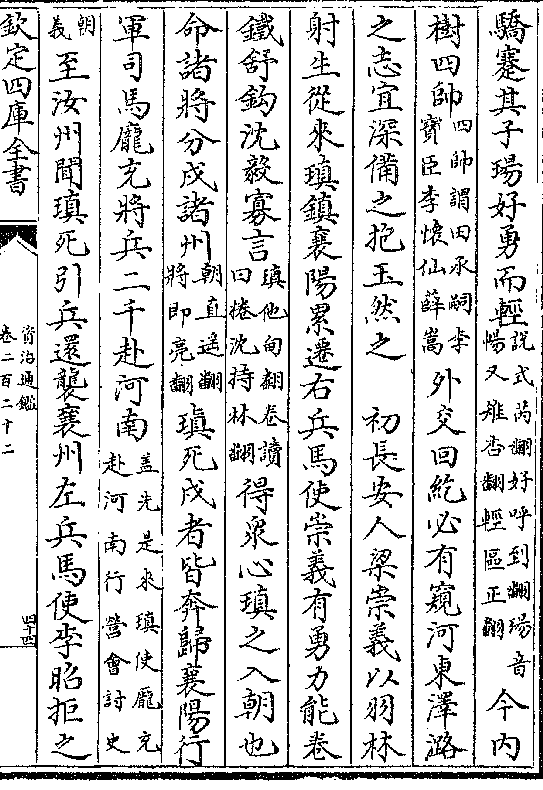 驕蹇其子瑒好勇而輕說式芮翻好呼到翻瑒音暢又雉杏翻輕區正翻今内
樹四帥四帥謂田承嗣李寶臣李懷仙薛嵩外交回紇必有窺河東澤潞
之志宜深備之抱玉然之 初長安人梁崇義以羽林
射生從來瑱鎮襄陽累遷右兵馬使崇義有勇力能卷
鐵舒鈎沈毅寡言瑱他甸翻卷讀曰捲沈持林翻得衆心瑱之入朝也
命諸將分戍諸州朝直遥翻將即亮翻瑱死戍者皆奔歸襄陽行
軍司馬龎充將兵二千赴河南盖先是來瑱使龎充赴河南行營會討史
朝義至汝州聞瑱死引兵還襲襄州左兵馬使李昭拒之
欽定四庫全書
資治通鑑
卷二百二十二
四十四